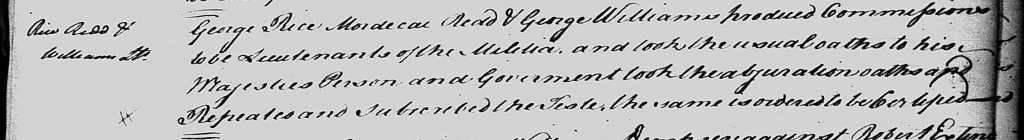 Rice Redd &
Williams Lts.
George Rice Mordecai Redd & George Williams produced Commissions
to be Lieutenants of the Militia, and took the usual oaths to his
Majesties Person and Goverment took the abjuration oaths and
Repeated and Subscribed the Teste, the same is ordered to be Certified
against Robert